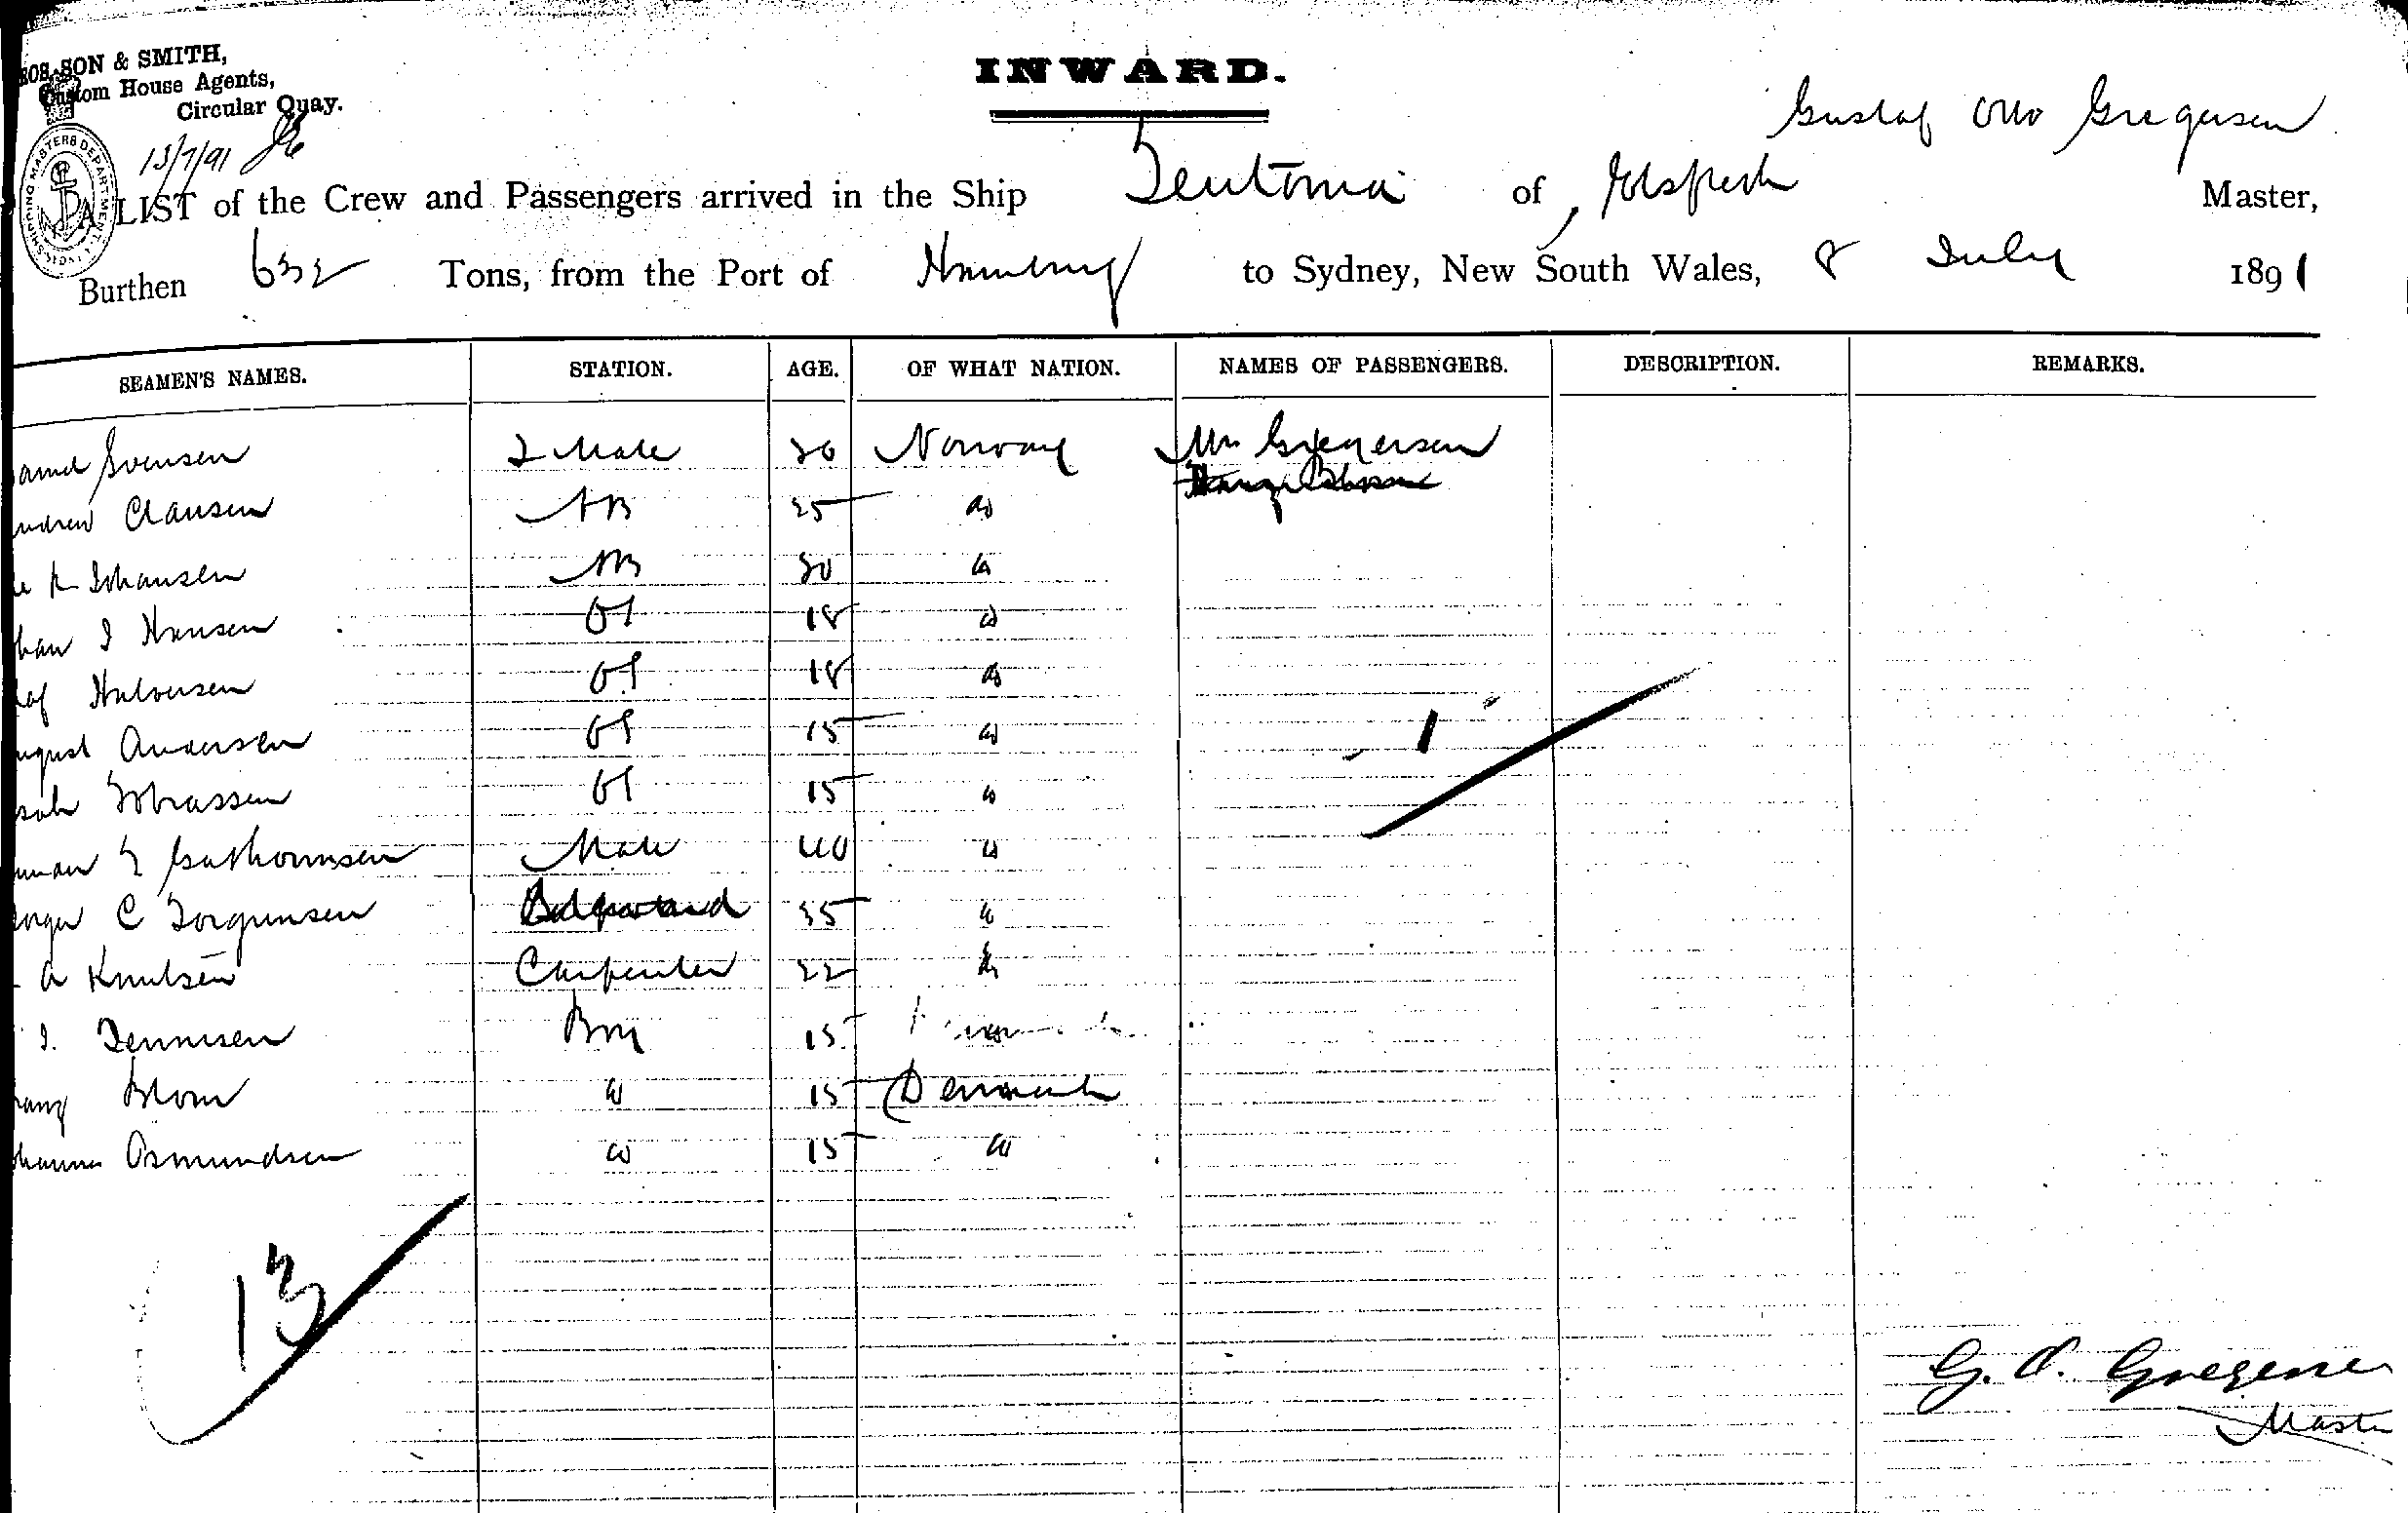 SON & SMITH,
Custom House Agents,
Circular Quay.
INWARD.
SHIPPING MASTERS DEPARTMENT
13/7/91
Gustaf Otto Gregersen
A LIST of the Crew and Passengers arrived in the Ship Teutonia of Master,
Burthen 632 Tons, from the Port of Hamburg to Sydney, New South Wales, 8 July 1891
SEAMEN'S NAMES. STATION. AGE. OF WHAT NATION. NAMES OF PASSENGERS. DESCRIPTION. REMARKS.
Svensen 2 Mate 30 Norway Mrs Gregersen
ndrew Clausen AB 25 do
K Johansen AB 30 do
han J Hansen OS 18 do
laf Halvorsen OS 18 do
ugust Andersen OS 15 do 1
OS 15 do
Mate 40 do
C Jorgensen 35 do
A Knutsen Carpenter 22 do
J. Tennisen Boy 15
ranz Blom do 15 Denmark
hannes Osmundsen do 15 do
13
G. O. Gregersen
Master